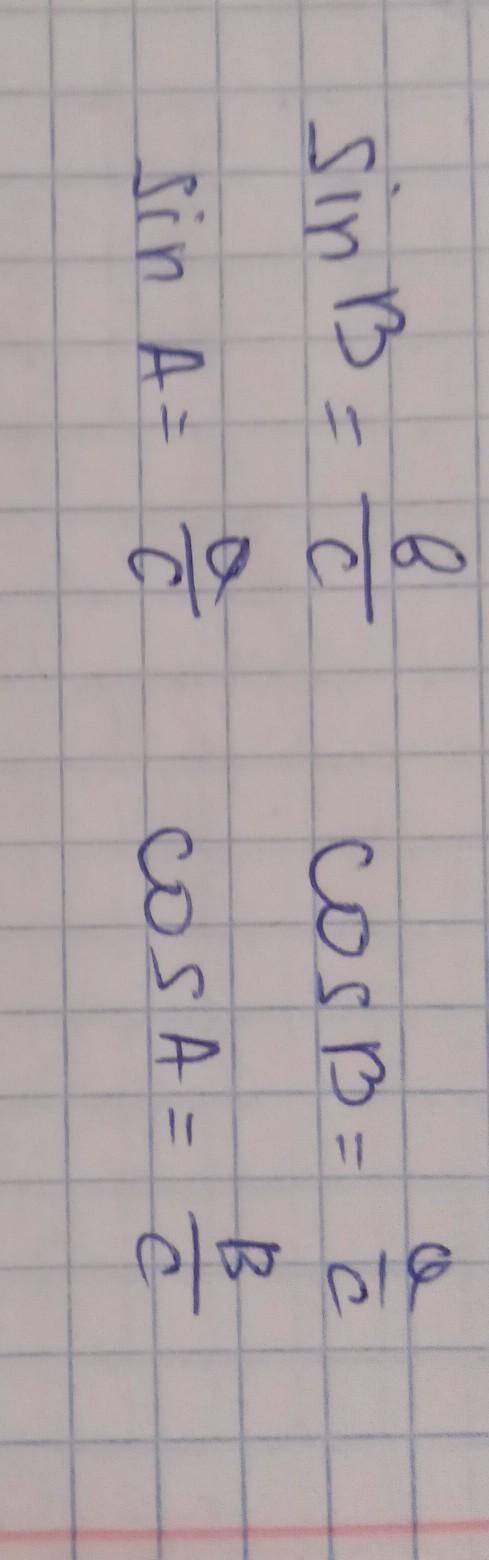 sin B = b/c cos B = a/c
sin A = a/c cos A = B/c